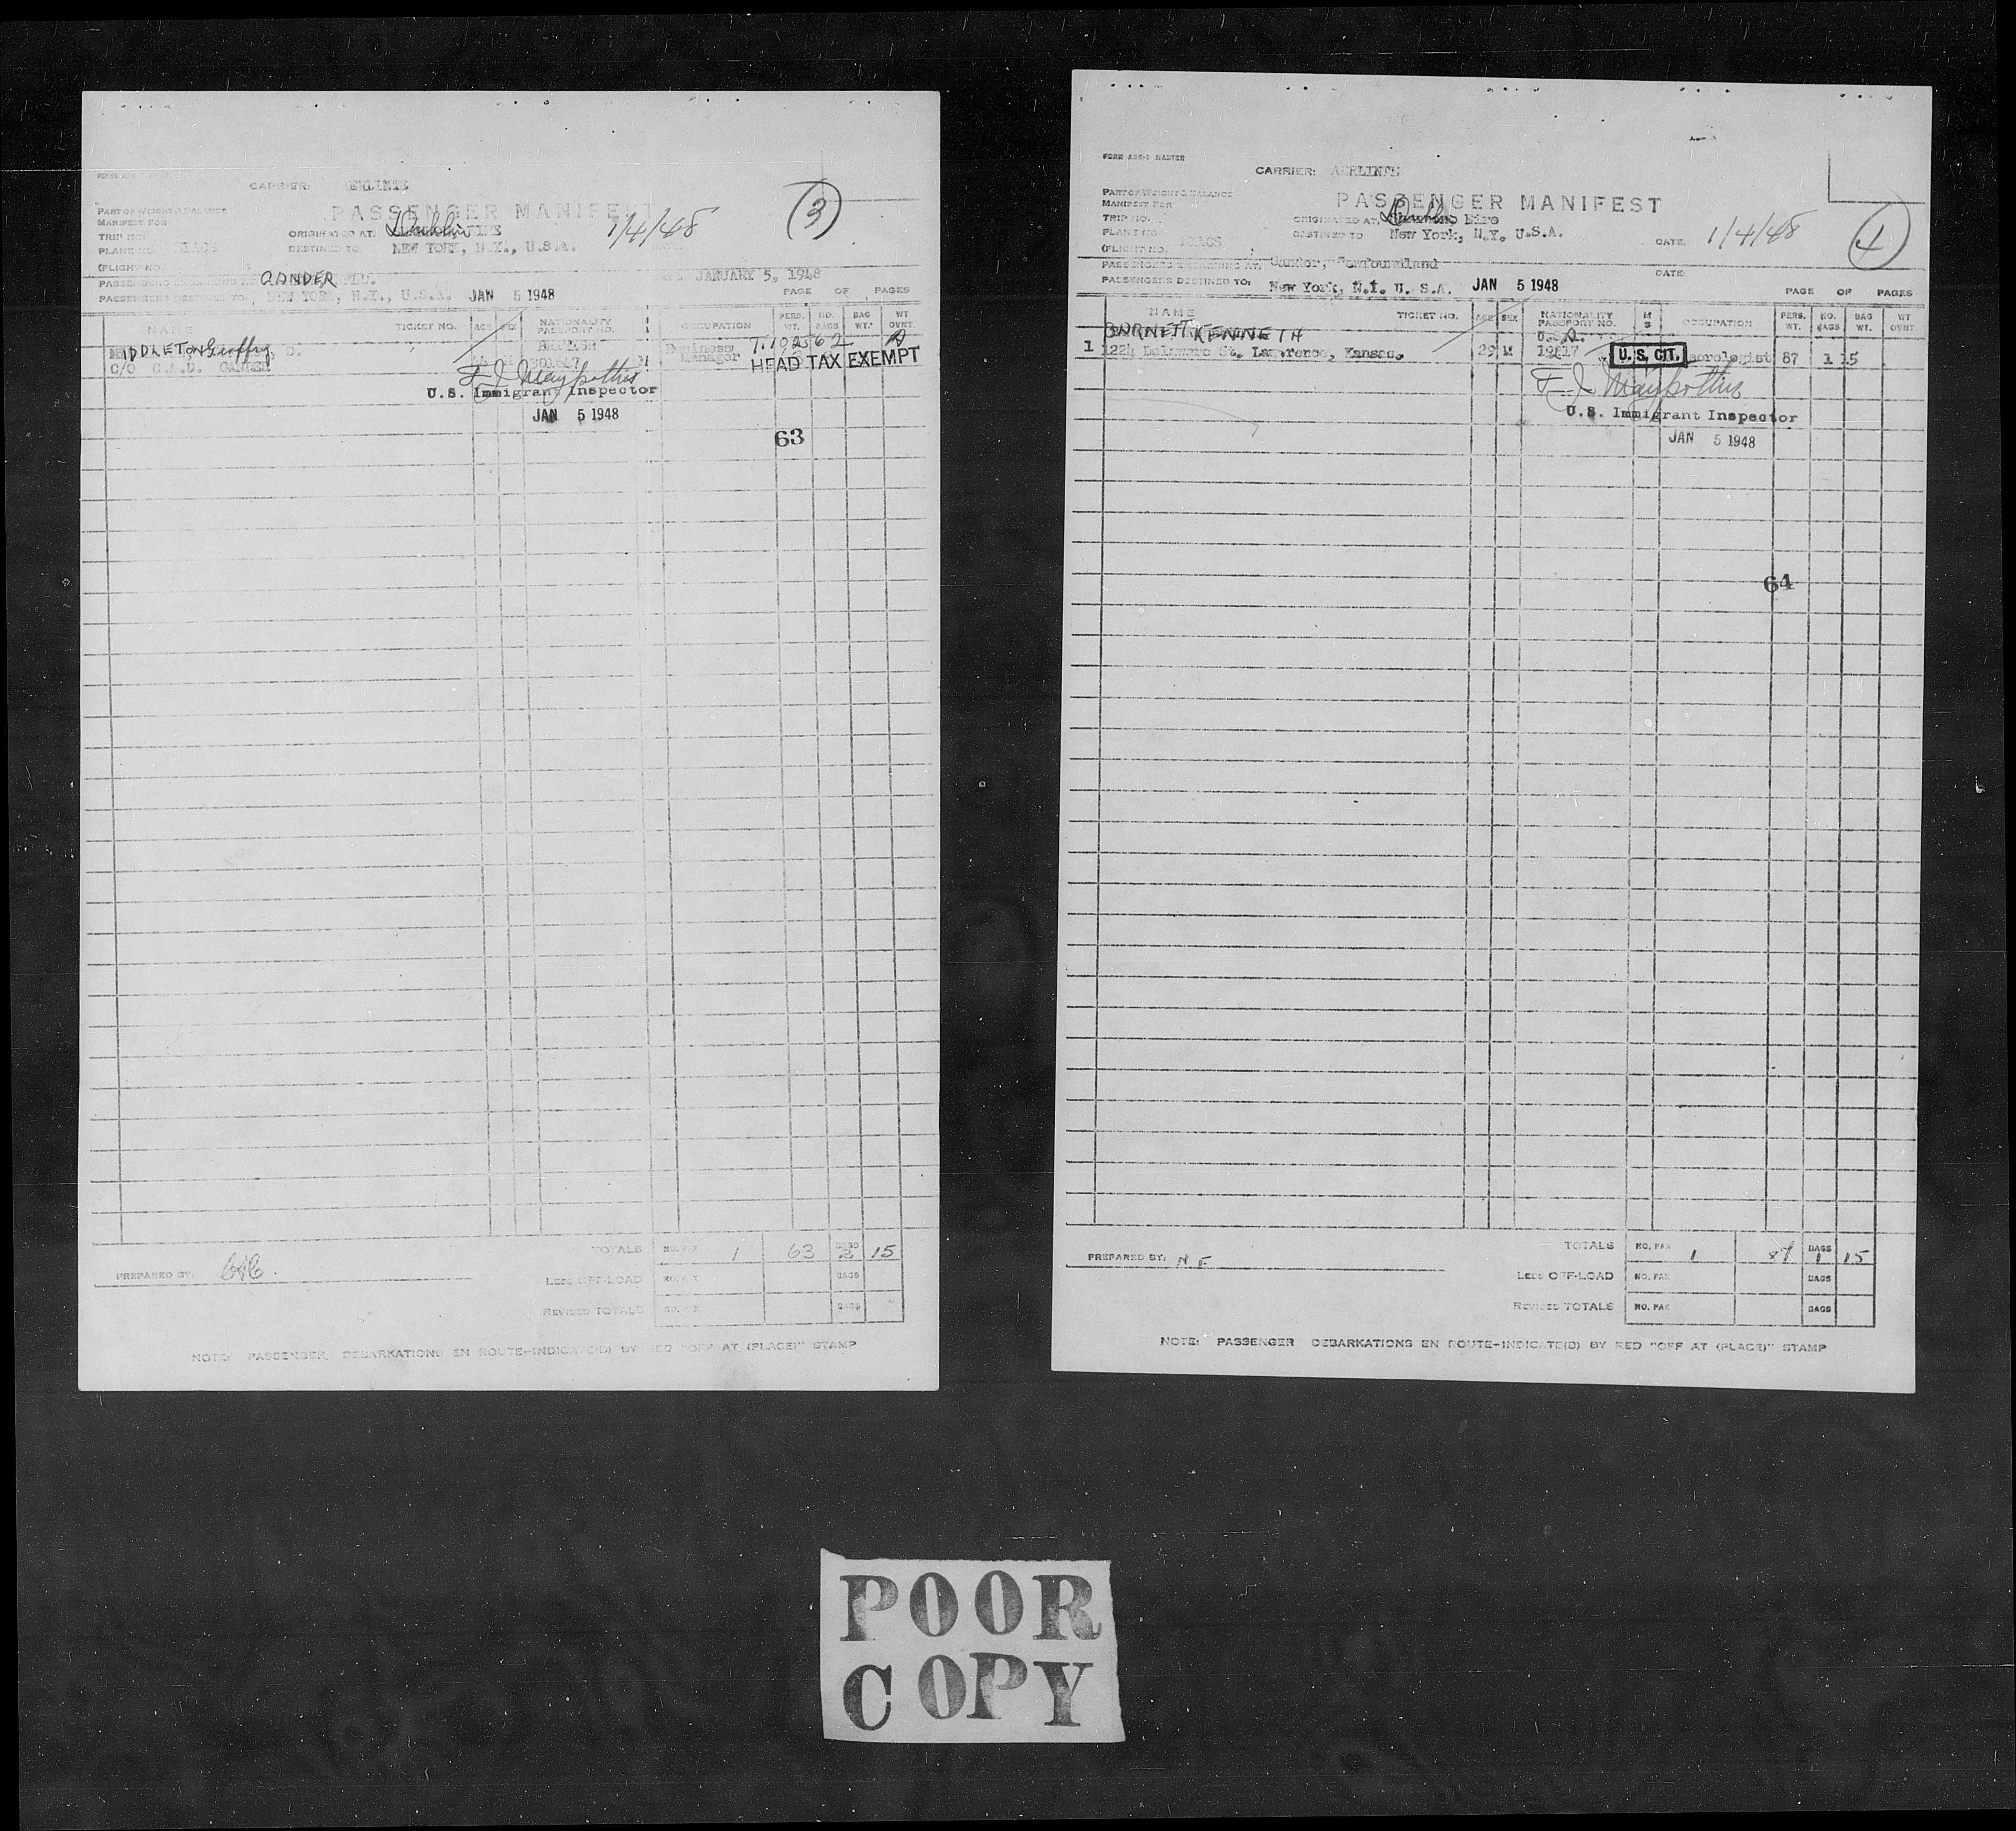 CARRIER: AERLINTE
PASSENGER MANIFEST
3
PART OF WEIGHT & BALANCE
MANIFEST FOR
TRIP NO.
ORIGINATED AT: Dublin, EIRE
1/4/48
PLANE NO.
DESTINED TO NEW YORK, N.Y., U.S.A.
(FLIGHT NO.
GANDER
JANUARY 5, 1948
PASSENGERS DESTINED TO: NEW YORK, N.Y., U.S.A. JAN 5 1948
PAGE OF PAGES
NAME TICKET NO. AGE SEX NATIONALITY PASSPORT NO. OCCUPATION PERS. WT. NO. BAGS BAG WT. WT OVNT.
MIDDLETON Geoffry D. BRITISH Business
C/O C.A.D. GANDER M Manager
HEAD TAX EXEMPT
U.S. Immigrant Inspector
JAN 5 1948
63
TOTALS NO. PAX 1 63 BAGS 2 15
PREPARED BY:
LESS OFF-LOAD NO. PAX BAGS
REVISED TOTALS NO. PAX BAGS
NOTE: PASSENGER DEBARKATIONS EN ROUTE-INDICATE(D) BY RED "OFF AT (PLACE)" STAMP
CARRIER: AERLINTE
PASSENGER MANIFEST
PART OF WEIGHT & BALANCE
MANIFEST FOR
TRIP NO.
ORIGINATED AT Dublin Eire
PLANE NO.
DESTINED TO New York, N.Y. U.S.A.
DATE: 1/4/48
(FLIGHT NO.
PASSENGERS EMBARKING AT: Gander, Newfoundland
DATE:
PASSENGERS DESTINED TO: New York, N.Y. U. S.A. JAN 5 1948
PAGE OF PAGES
NAME TICKET NO. AGE SEX NATIONALITY PASSPORT NO. M S OCCUPATION PERS. WT. NO. BAGS BAG WT. WT OVNT.
BURNETT KENNETH U.S.A.
1 1224 Delaware St. Lawrence, Kansas. 29 M U.S. CIT. 87 1 15
U.S. Immigrant Inspector
JAN 5 1948
64
TOTALS NO. PAX 1 87 BAGS 1 15
PREPARED BY: N F
LESS OFF-LOAD NO. PAX BAGS
REVISED TOTALS NO. PAX BAGS
NOTE: PASSENGER DEBARKATIONS EN ROUTE-INDICATE(D) BY RED "OFF AT (PLACE)" STAMP
POOR
COPY